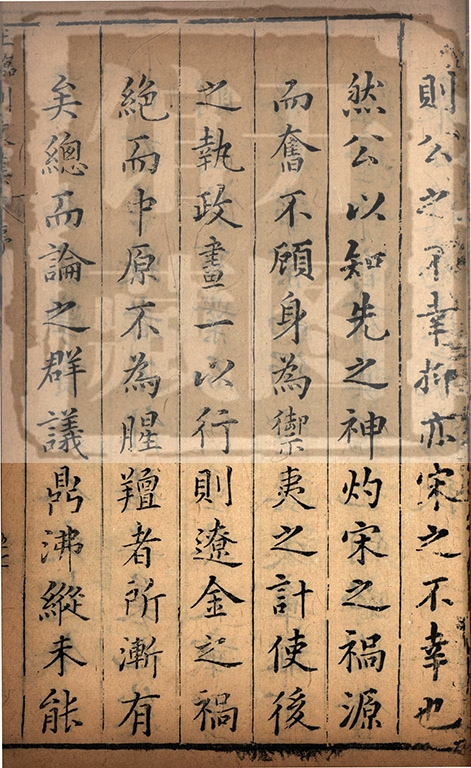 則公之不幸抑亦宋之不幸也
然公以知先之神灼宋之禍源
而奮不顧身為禦夷之計使後
之執政畫一以行則遼金之禍
絶而中原不為腥羶者所漸有
矣總而論之群議鼎沸縱未能